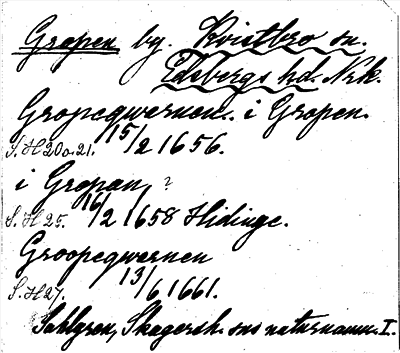 Gropen by. Kvistbro sn.
Edsbergs hd. Nrk.
Gropeqwernen. i Gropen.
S. H 20 o. 21. 15/2 1656.
i Gropan, ?
S. H 25. 16/2 1658 Hidinge.
Groopeqwernen
S. H 27. 13/6 1661.
Sahlgren, Skagersh. sns naturnamn. I.